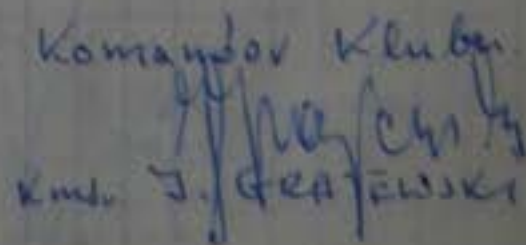 Komandor Klubu
kmdr J. GRAJEWSKI